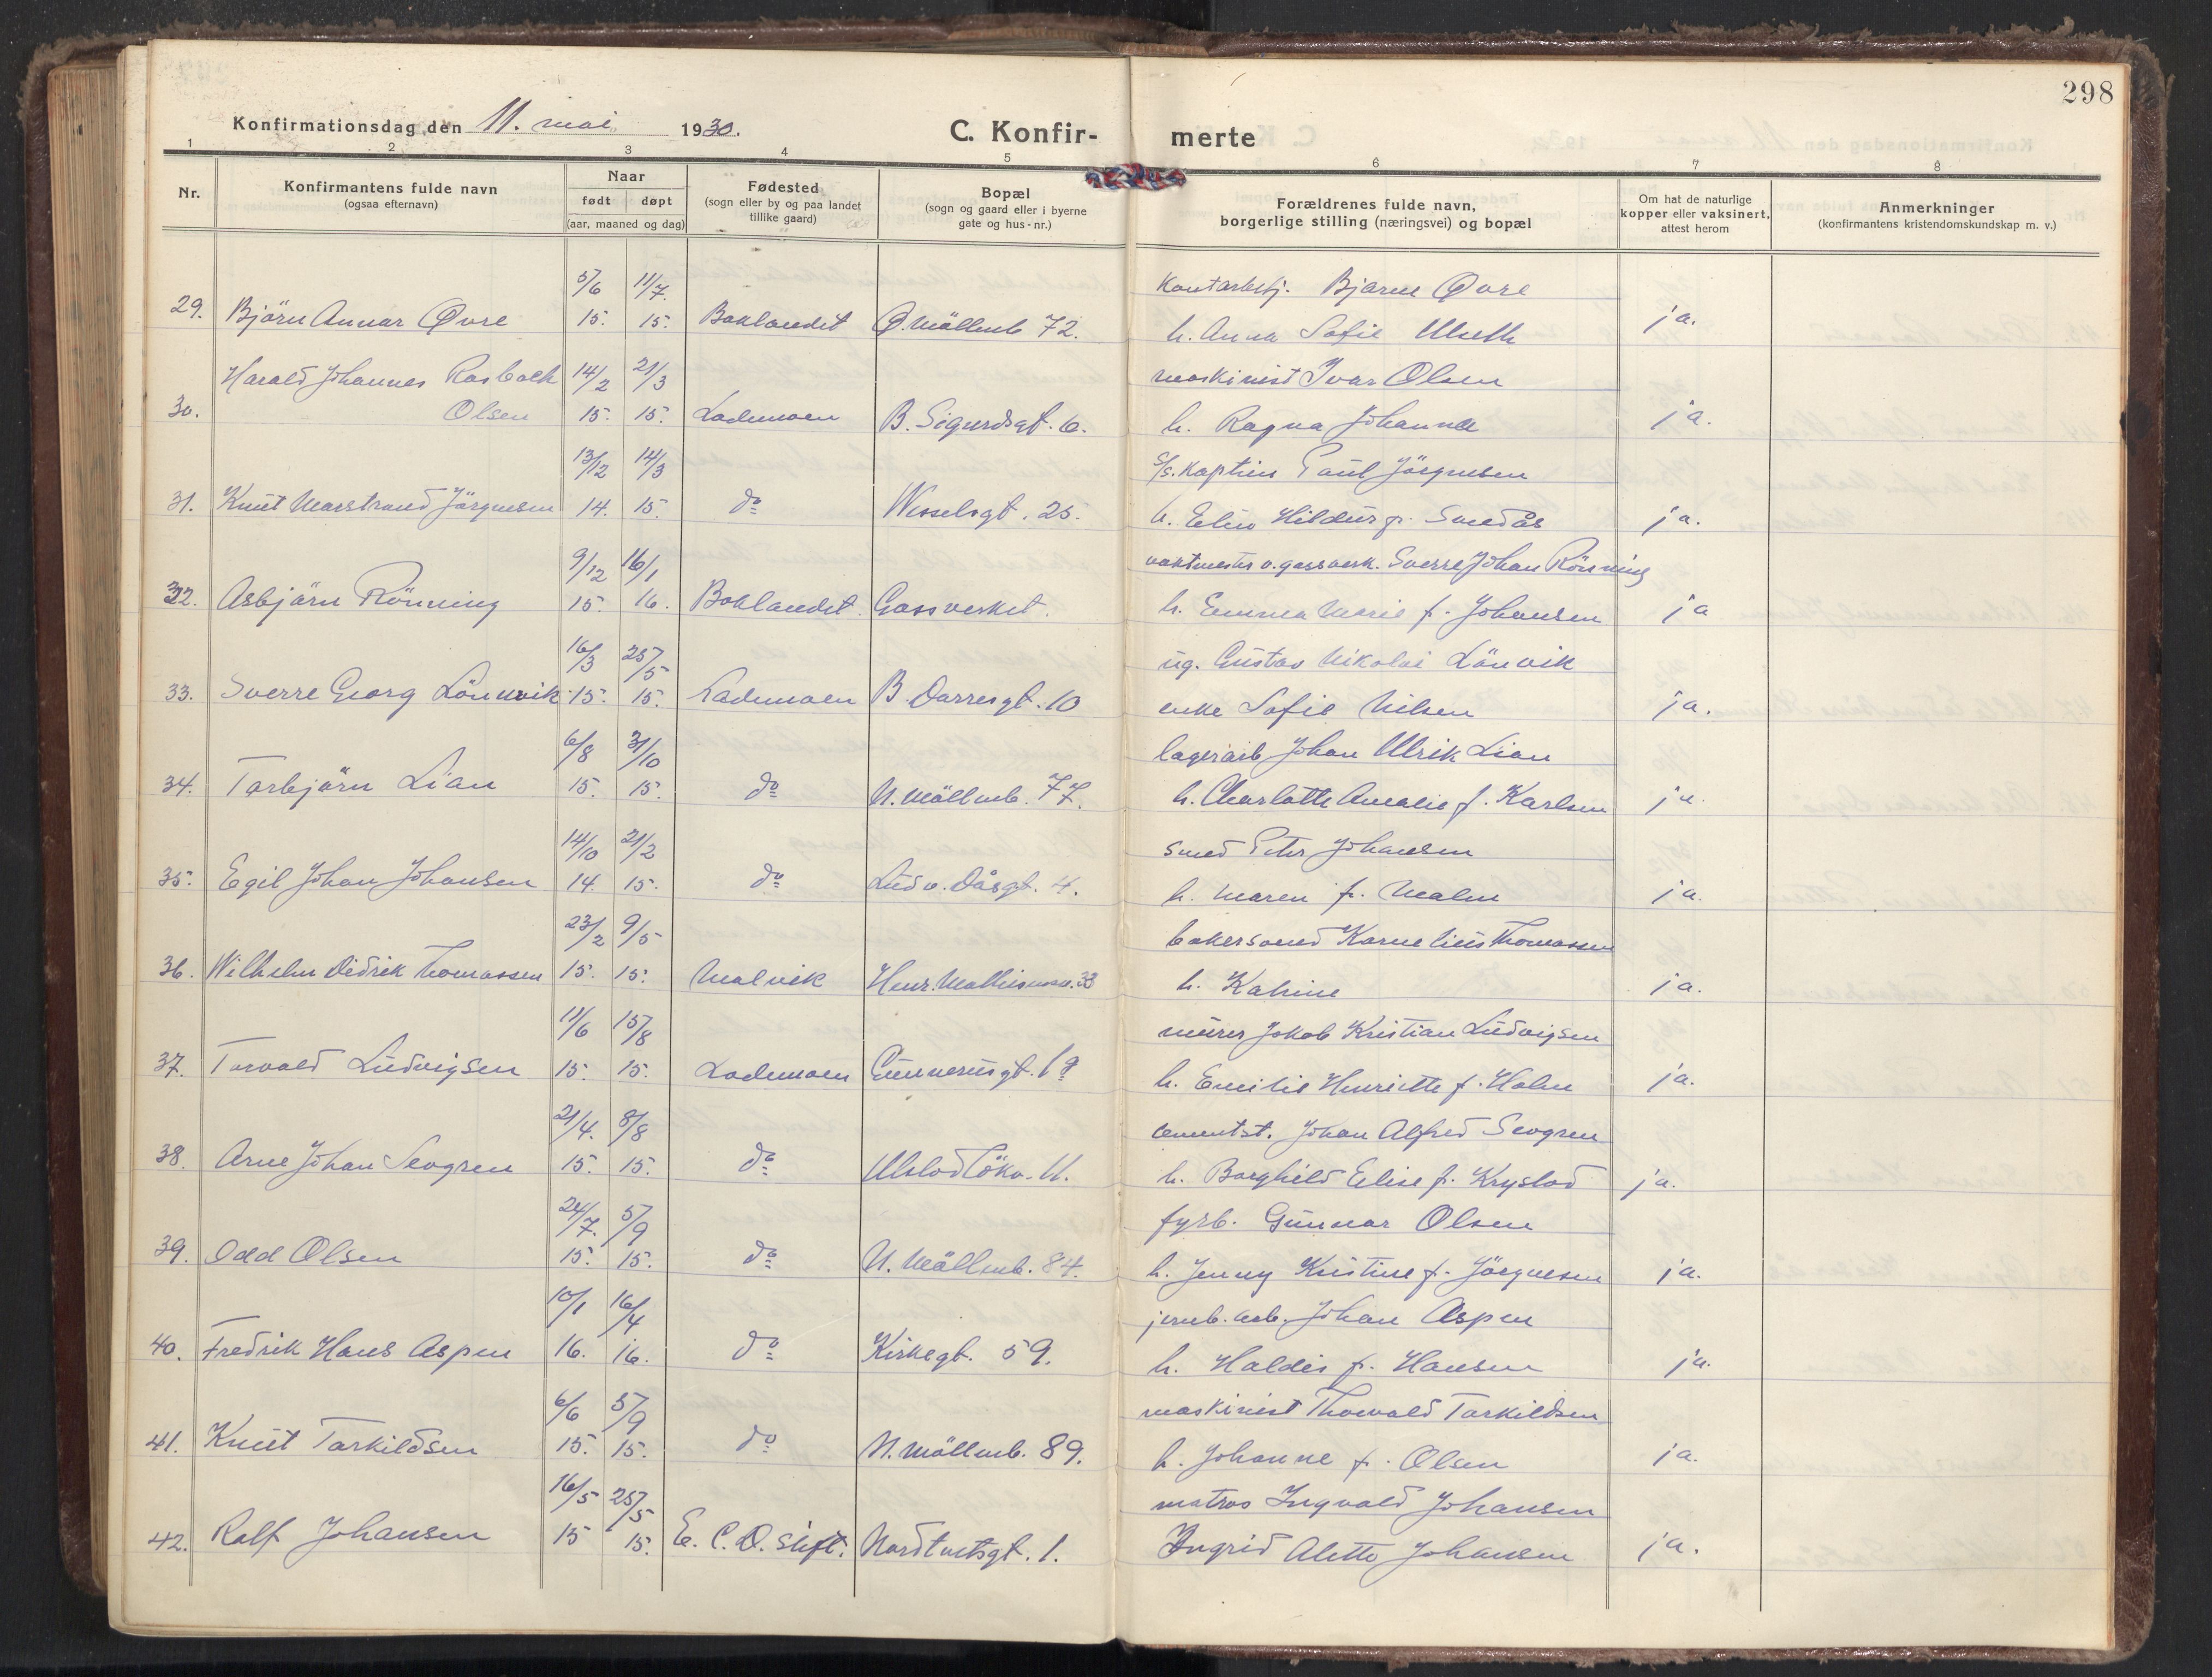 298
Konfirmationsdag den 11. mai 1930.
C. Konfir- merte
1 2 3 4 5 6 7 8
Nr.
Konfirmantens fulde navn
(ogsaa efternavn)
Naar
født døpt
(aar, maaned og dag)
Fødested
(sogn eller by og paa landet
tillike gaard)
Bopæl
(sogn og gaard eller i byerne
gate og hus-nr.)
Forældrenes fulde navn,
borgerlige stilling (næringsvei) og bopæl
Om hat de naturlige
kopper eller vaksinert,
attest herom
Anmerkninger
(konfirmantens kristendomskundskap m. v.)
5/6 11/7. Bjarne Øvre
29. Björn Annar Øvre 15. 15. Baklandet Ø. Möllenb 72. h. Anna Sofie ja.
Harald Johannes Rosbach 14/2 21/3 maskinist Ivar Olsen
30. Olsen 15. 15. Lademoen B. Sigurdsgt. 6. h. Ragna Johanna ja.
13/12 14/3 s/s. kaptein Paul Jörgensen
31. Knut Marstrand Jörgensen 14. 15. do Wesselsgt. 25. h. Elin Hildur f. Smedås ja.
9/12 16/1 vaktmester v. gassverk. Sverre Johan Rönning
32. Asbjörn Rönning 15. 16. Baklandet. Gassverket. h. Emma Marie f. Johansen ja
16/3 25/5 ug. Gustav Nikolai Lönvik
33. Sverre Georg Lönnvik 15. 15. Lademoen B. Darresgt. 10 enke Sofie Nilsen ja.
6/8 31/10 lagerarb Johan Ulrik Lian
34. Torbjörn Lian 15. 15. do N. Möllenb. 77. h. Charlotte Amalie f. Karlsen ja.
14/10 21/2 smed Peter Johansen
35. Egil Johan Johansen 14. 15. do Ludv. Dåsgt. 4. h. Maren f. Malm ja.
23/2 9/5 bakersvend Kornelius Thomassen
36. Wilhelm Didrik Thomassen 15. 15. Malvik Henr. Mathiesensv. 33 h. Katrine ja.
11/6 15/8 murer Jakob Kristian Ludvigsen
37. Torvald Ludvigsen 15. 15. Lademoen Gunnerusgt. 1a h. Emilie Henriette f. Holm ja.
21/4. 8/8 cementst. Johan Alfred Seogren
38. Arne Johan Seogren 15. 15. do Ulstadlökv. 11. h. Borghild Elise f. Krystad ja.
24/7. 5/9 fyrb. Gunnar Olsen
39. Odd Olsen 15. 15. do N. Möllenb. 84. h. Jenny Kristine f. Jörgensen ja.
10/1 16/4 jernb. arb. Johan Aspen
40. Fredrik Hans Aspen 16. 16. do Kirkegt. 59. h. Haldis f. Hansen ja.
6/6 5/9 maskinist Thorvald Torkildsen
41. Knut Torkildsen 15. 15. do N. Möllenb. 89. h. Johanne f. Olsen ja.
16/5 25/5 matros Ingvald Johansen
42. Rolf Johansen 15 15. E. C. D. stift. Nordtvetsgt. 1. Ingrid Alette Johansen ja.